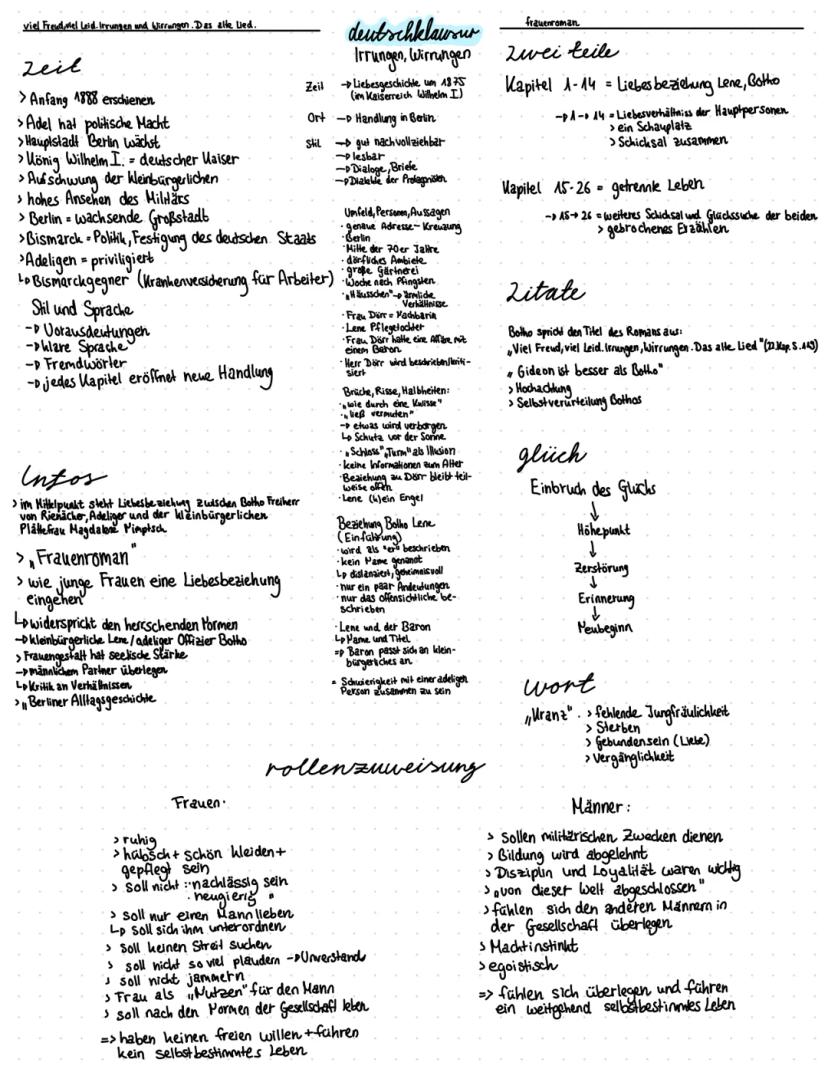 viel Freud, viel Leid. Irrungen und Wirrungen. Das alte Lied.
deutschklausur
Irrungen, Wirrungen
frauenroman
zeit
> Anfang 1888 erschienen
> Adel hat politische Macht
> Hauptstadt Berlin wächst
> König Wilhelm I. = deutscher Kaiser
> Aufschwung der kleinbürgerlichen
> hohes Ansehen des Militärs
> Berlin = wachsende Großstadt
> Bismarck = Politik, Festigung des deutschen Staats
> Adeligen = priviligiert
↳ Bismarckgegner (Krankenversicherung für Arbeiter)
Stil und Sprache
→ Vorausdeutungen
→ klare Sprache
→ Fremdwörter
→ jedes Kapitel eröffnet neue Handlung
Infos
> im Mittelpunkt steht Liebesbeziehung zwischen Botho Freiherr
von Rienäcker, Adeliger und der kleinbürgerlichen
Plättefrau Magdalene Nimptsch
> „Frauenroman"
> wie junge Frauen eine Liebesbeziehung
eingehen
↳ widerspricht den herrschenden Normen
→ kleinbürgerliche Lene/adeliger Offizier Botho
> Frauengestalt hat seelische Stärke
→ männlichem Partner überlegen
↳ Kritik an Verhältnissen
> „Berliner Alltagsgeschichte
Zeit → Liebesgeschichte um 1875
(im Kaiserreich Wilhelm I)
Ort → Handlung in Berlin
Stil → gut nachvollziehbar
→ lesbar
→ Dialoge, Briefe
→ Dialekte der Protagonisten
Umfeld, Personen, Aussagen
· genaue Adresse - Kreuzung
· Berlin
· Mitte der 70er Jahre
· dörfliches Ambiete
· große Gärtnerei
· Woche nach Pfingsten
· „Häusschen" → ärmliche
Verhältnisse
· Frau Dörr = Nachbarin
· Lene Pflegetochter
· Frau Dörr hatte eine Affäre mit
einem Baron
· Herr Dörr wird beschrieben/kriti-
siert
Brüche, Risse, Halbheiten:
· „wie durch eine Kulisse"
· „ließ vermuten"
→ etwas wird verborgen
↳ Schutz vor der Sonne
· „Schloss", „Turm" als Illusion
· keine Informationen zum Alter
· Beziehung zu Dörr bleibt teil-
weise offen
· Lene (k)ein Engel
Beziehung Botho Lene
(Einführung)
· wird als "er" beschrieben
· kein Name genannt
↳ distanziert, geheimnisvoll
· nur ein paar Andeutungen
· nur das offensichtliche be-
schrieben
· Lene und der Baron
↳ Name und Titel
=> Baron passt sich an klein-
bürgerliches an
= Schwierigkeit mit einer adeligen
Person zusammen zu sein
zwei teile
Kapitel 1-14 = Liebesbeziehung Lene, Botho
→ 1 → 14 = Liebesverhältniss der Hauptpersonen
> ein Schauplatz
> Schicksal zusammen
Kapitel 15-26 = getrennte Leben
→ 15 → 26 = weiteres Schicksal und Glückssuche der beiden
> gebrochenes Erzählen
zitate
Botho spricht den Titel des Romans aus:
„Viel Freud, viel Leid. Irrungen, Wirrungen. Das alte Lied"
„Gideon ist besser als Botho"
> Hochachtung
> Selbstverurteilung Bothos
glück
Einbruch des Glücks
↓
Höhepunkt
↓
Zerstörung
↓
Erinnerung
↓
Neubeginn
wort
„Kranz". > fehlende Jungfräulichkeit
> Sterben
> Gebundensein (Liebe)
> Vergänglichkeit
rollenzuweisung
Frauen:
> ruhig
> hübsch + schön kleiden +
gepflegt sein
> soll nicht: · nachlässig sein
· neugierig "
> soll nur einen Mann lieben
↳ soll sich ihm unterordnen
> soll keinen Streit suchen
> soll nicht so viel plaudern → Unverstand
> soll nicht jammern
> Frau als „Nutzen" für den Mann
> soll nach den Normen der Gesellschaft leben
=> haben keinen freien willen + führen
kein selbstbestimmtes Leben
Männer:
> Sollen militärischen Zwecken dienen
> Bildung wird abgelehnt
> Disziplin und Loyalität waren wichtig
> „von dieser Welt abgeschlossen"
> fühlen sich den anderen Männern in
der Gesellschaft überlegen
> Machtinstinkt
> egoistisch
=> fühlen sich überlegen und führen
ein weitgehend selbstbestimmtes Leben